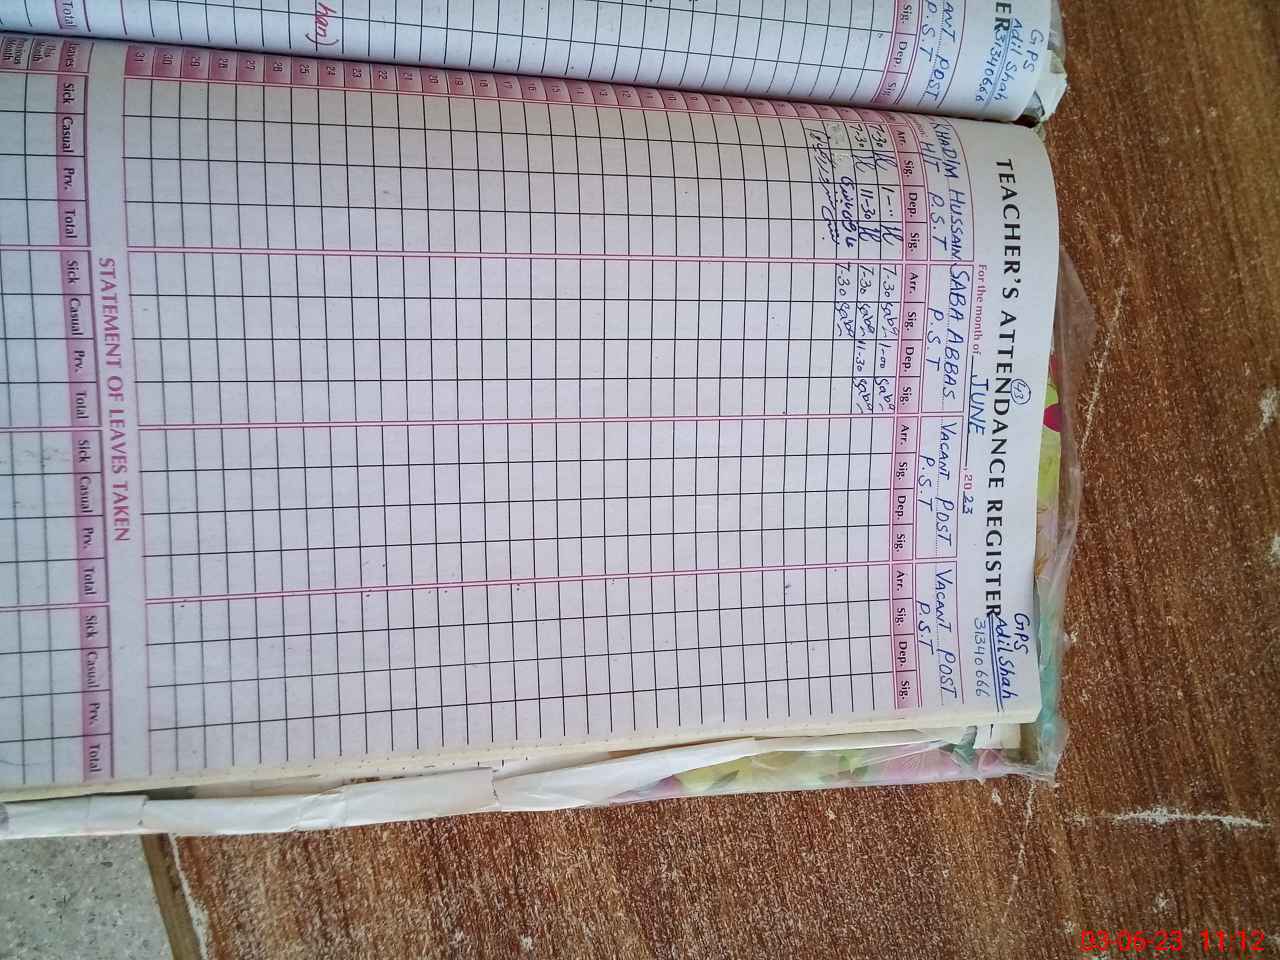 TEACHER'S ATTENDANCE REGISTER
43
GPS
Adil Shah
31340666
For the month of JUNE, 2023
KHADIM HUSSAIN
HT P.S.T
SABA ABBAS
P.S.T
VACANT POST
P.S.T
VACANT POST
P.S.T
Arr. Sig. Dep. Sig. Arr. Sig. Dep. Sig. Arr. Sig. Dep. Sig. Arr. Sig. Dep. Sig.
7-30 1-00 7-30 Saba 1-00 Saba
7-30 11-30 7-30 Saba 11-30 Saba
7-30 Saba
11
12
13
14
15
16
17
18
19
20
21
22
23
24
25
26
27
28
29
30
31
STATEMENT OF LEAVES TAKEN
Leaves Sick Casual Prv. Total Sick Casual Prv. Total Sick Casual Prv. Total Sick Casual Prv. Total
This Month
Previous Month
GPS
Adil Shah
31340666
ER
ANT POST
P.S.T
Sig. Dep. Sig.
han)
Total
03-06-23 11:12